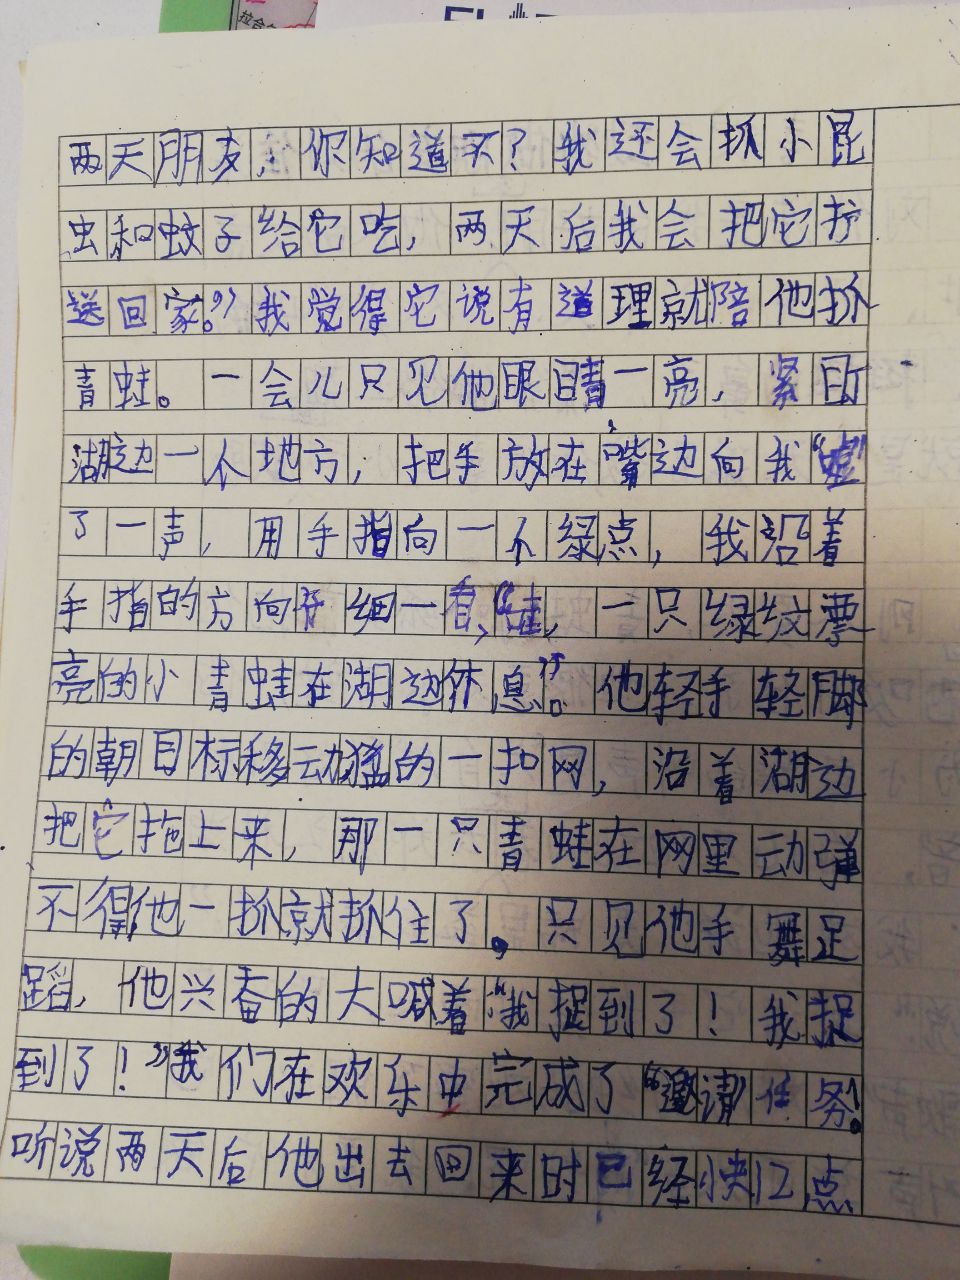 拉合
两天朋友,你知道不?我还会抓小昆
虫和蚊子给它吃,两天后我会把它护
送回家。”我觉得它说有道理就陪他抓
青蛙。一会儿只见他眼睛一亮,紧盯
湖边一个地方,把手放在嘴边向我“嘘”
了一声,用手指向一个绿点,我沿着
手指的方向仔细一看,“哇,一只绿纹漂
亮的小青蛙在湖边休息”。他轻手轻脚
的朝目标移动猛的一扣网,沿着湖边
把它拖上来,那一只青蛙在网里动弹
不得他一抓就抓住了。只见他手舞足
蹈,他兴奋的大喊着“我捉到了!我捉
到了!”我们在欢乐中完成了“邀请”任务!
听说两天后他出去回来时已经快12点